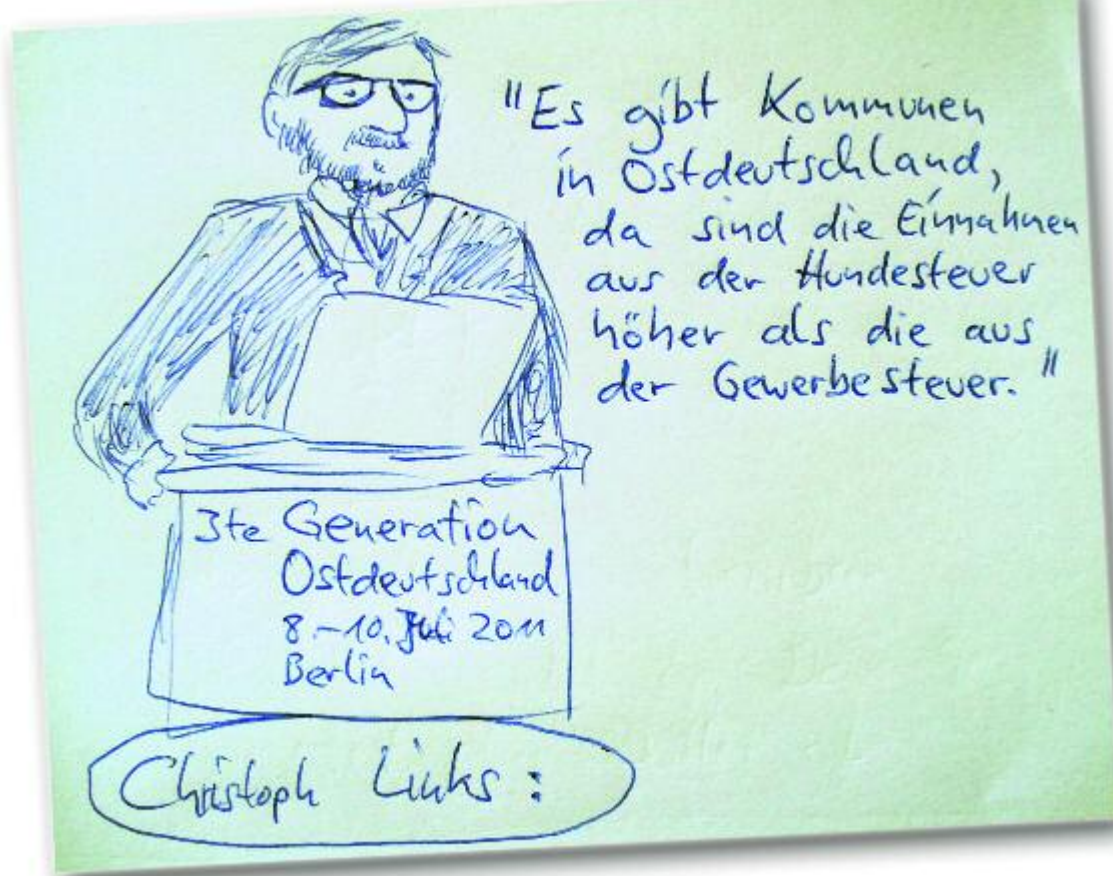 "Es gibt Kommunen
in Ostdeutschland,
da sind die Einnahmen
aus der Hundesteuer
höher als die aus
der Gewerbesteuer."
3te Generation
Ostdeutschland
8.-10. Juli 2011
Berlin
Christoph Links: